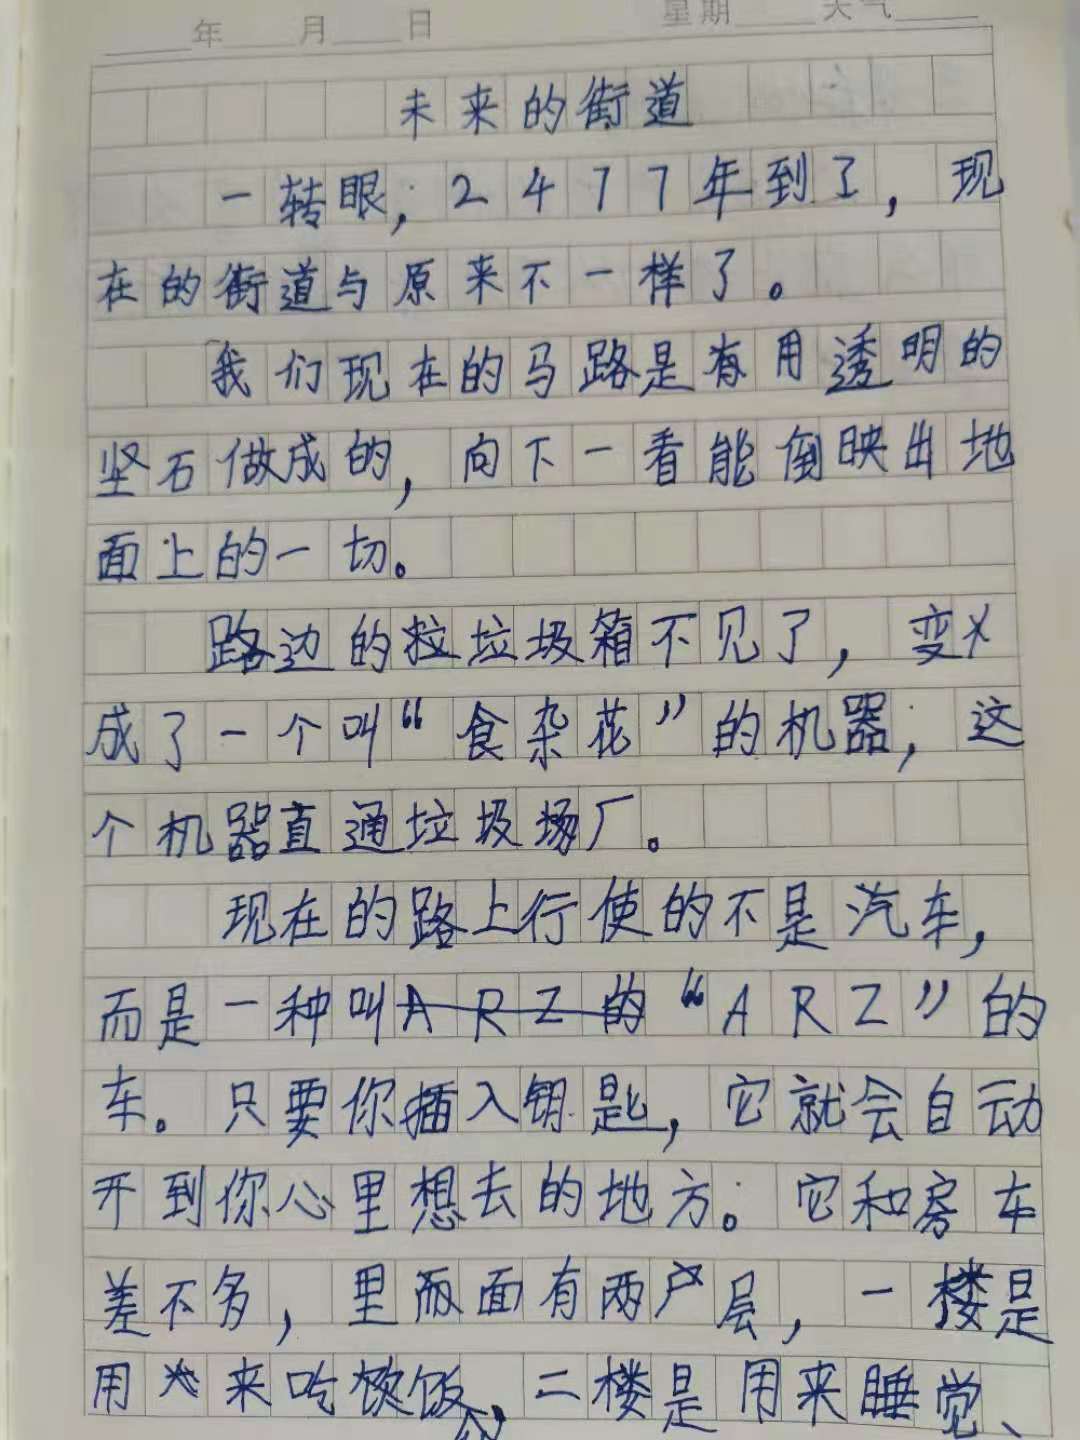 年 月 日 星期 天气
未来的街道
一转眼，2477年到了，现
在的街道与原来不一样了。
我们现在的马路是有用透明的
坚石做成的，向下一看能倒映出地
面上的一切。
路边的拉垃圾箱不见了，变
成了一个叫“食杂花”的机器，这
个机器直通垃圾场厂。
现在的路上行使的不是汽车，
而是一种叫ARZ的“ARZ”的
车。只要你插入钥匙，它就会自动
开到你心里想去的地方。它和房车
差不多，里面有两层，一楼是
用来吃饭，二楼是用来睡觉、